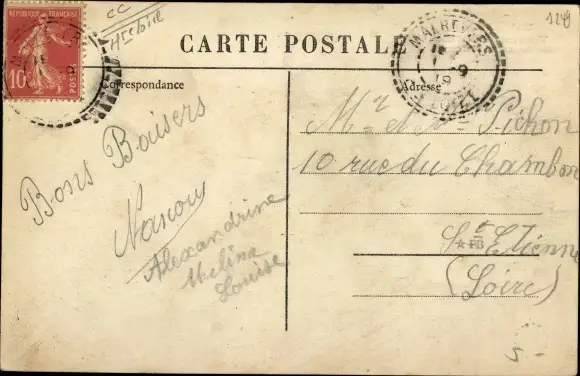 RÉPUBLIQUE FRANÇAISE
10
cc
Hte Loire
1249
CARTE POSTALE
Correspondance
Adresse
9
Bons Baisers
Nanou
Alexandrine
Melina
Louise
Mr et Me Pichon
10 rue du Chambon
St Etienne
(Loire)
FB
5-